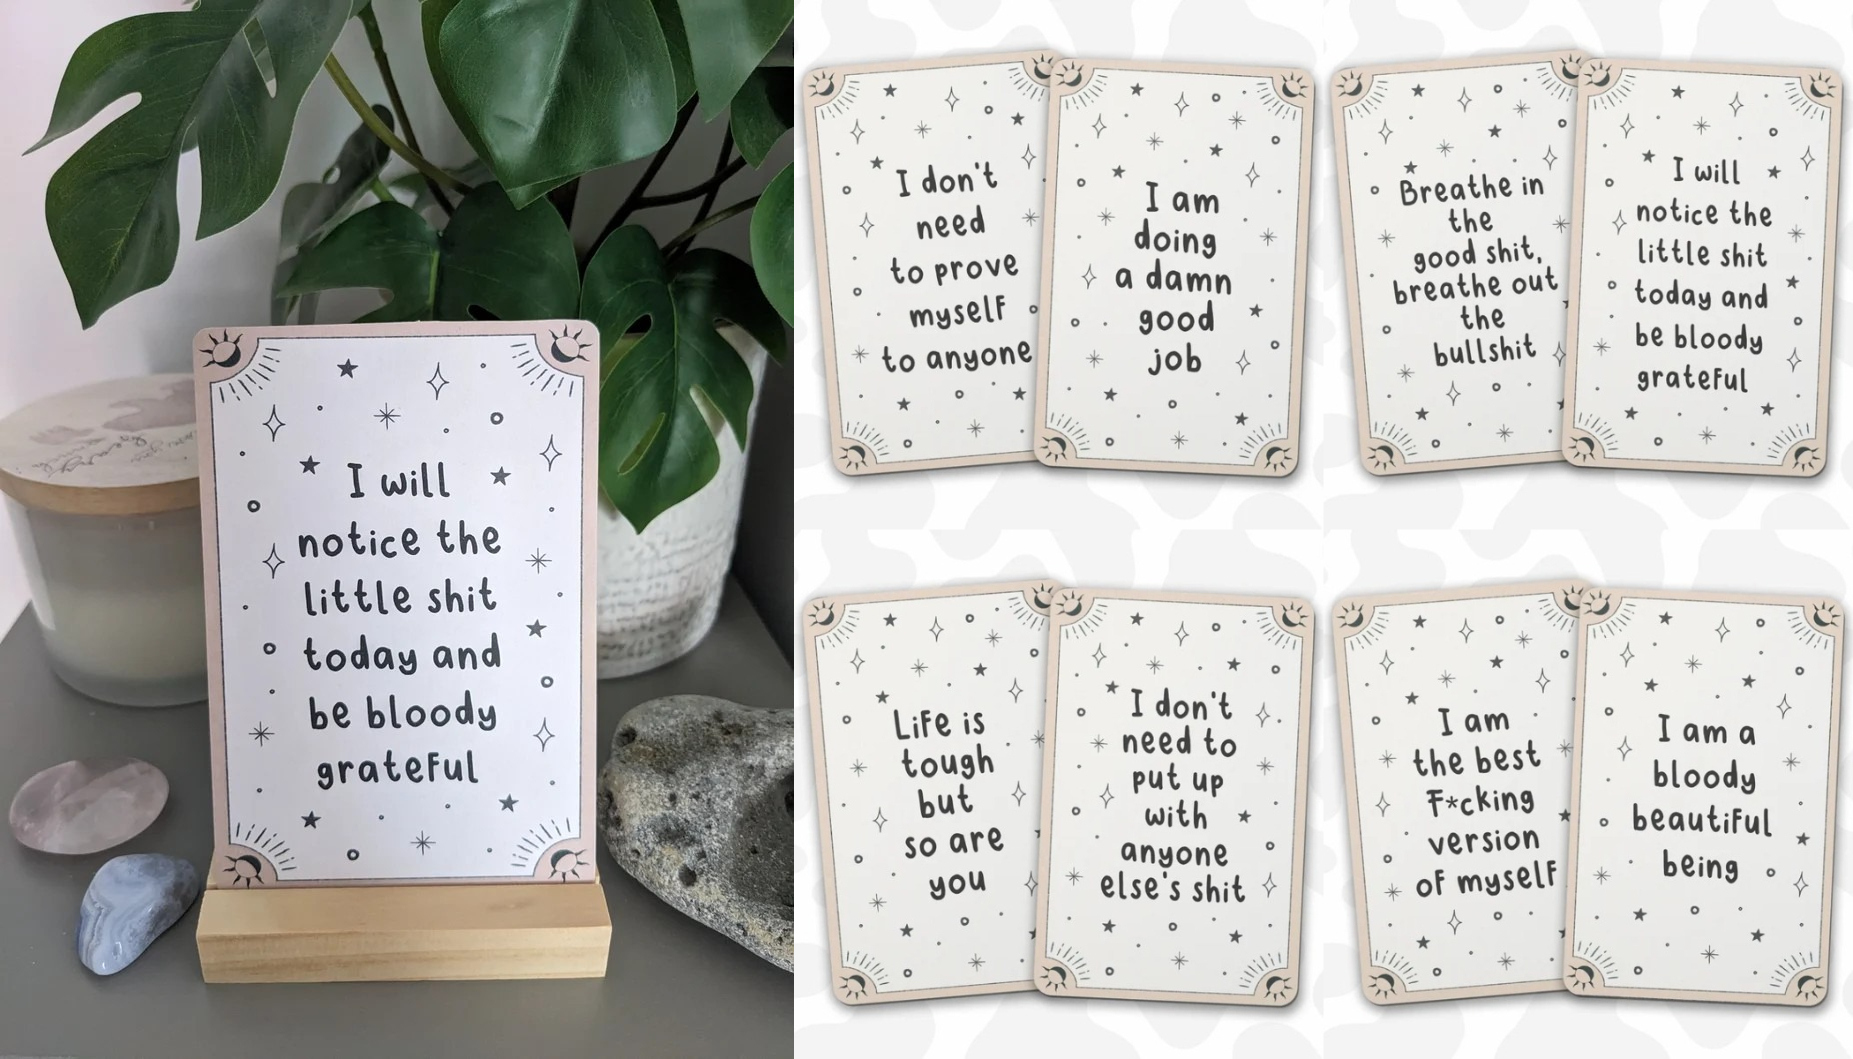 I will
notice the
little shit
today and
be bloody
grateful
I don't
need
to prove
myself
to anyone
I am
doing
a damn
good
job
Breathe in
the
good shit,
breathe out
the
bullshit
I will
notice the
little shit
today and
be bloody
grateful
Life is
tough
but
so are
you
I don't
need to
put up
with
anyone
else's shit
I am
the best
F*cking
version
of myself
I am a
bloody
beautiful
being